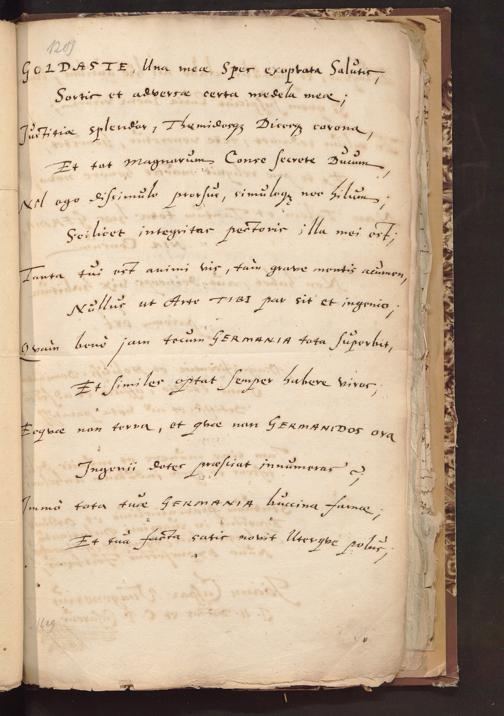 1209
GOLDASTE, Una meæ Spes exoptata Salutis,
Sortis et adversæ certa medela meæ;
Justitiæ splendor, Themidosq3 Dicesq3 corona,
Et tot Magnarum Conse secrete Ducum,
Nil ego dissimulo prorsus, simuloq3 nec hilum;
Scilicet integritas pectoris illa mei est;
Tanta tui est animi vis, tam grave mentis acumen,
Nullus ut Arte TIBI par sit et ingenio;
Quam benè jam tecum GERMANIA tota superbit,
Et similes optat semper habere viros;
Ecquæ non terra, et quæ non GERMANIDOS ora
Ingenii dotes prædicat innumeras?
Immò tota tuæ GERMANIA buccina famæ;
Et tua facta satis novit Uterque polus;